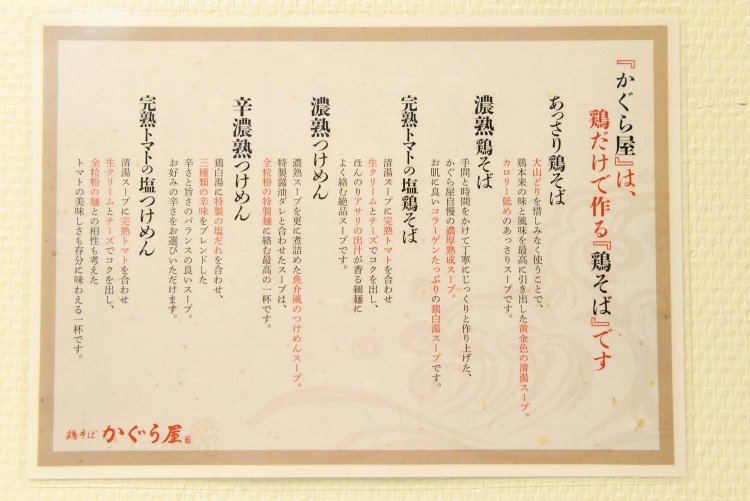 『かぐら屋』は、
鶏だけで作る『鶏そば』です
あっさり鶏そば
大山どりを惜しみなく使うことで、
鶏本来の味と風味を最高に引き出した黄金色の清湯スープ。
カロリー低めのあっさりスープです。
濃熟鶏そば
手間と時間をかけて丁寧にじっくりと作り上げた、
かぐら屋自慢の濃厚熟成スープ。
お肌に良いコラーゲンたっぷりの鶏白湯スープです。
完熟トマトの塩鶏そば
清湯スープに完熟トマトを合わせ
生クリームとチーズでコクを出し、
ほんのりアサリの出汁が香る細麺に
よく絡む絶品スープです。
濃熟つけめん
濃熟スープを更に煮詰めた魚介風のつけめんスープ。
特製醤油ダレと合わせたスープは、
全粒粉の特製麺に絡む最高の一杯です。
辛濃熟つけめん
鶏白湯に特製の塩だれを合わせ、
三種類の辛味をブレンドした
辛さと旨さのバランスの良いスープ。
お好みの辛さをお選びいただけます。
完熟トマトの塩つけめん
清湯スープに完熟トマトを合わせ
生クリームとチーズでコクを出し、
全粒粉の麺との相性も考えた
トマトの美味しさも存分に味わえる一杯です。
鶏そば かぐら屋